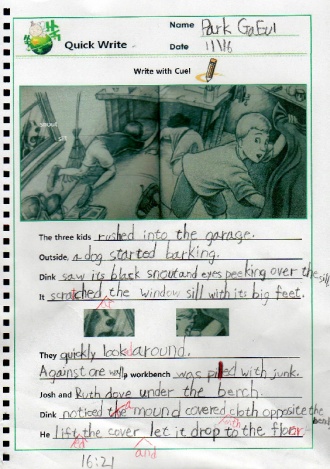 Quick Write
Name Park GaEul
Date 1/1/16
Write with Cue!
snout
sill
The three kids rushed into the garage.
Outside, a dog started barking.
Dink saw its black snout and eyes peeking over the sill
It scratched the window sill with its big feet.
They quickly look around.
Against one wall, a workbench was piled with junk.
Josh and Ruth dove under the bench.
Dink noticed the mound covered cloth opposite the
with
He lift the cover let it drop to the floor.
ed
and
16:21